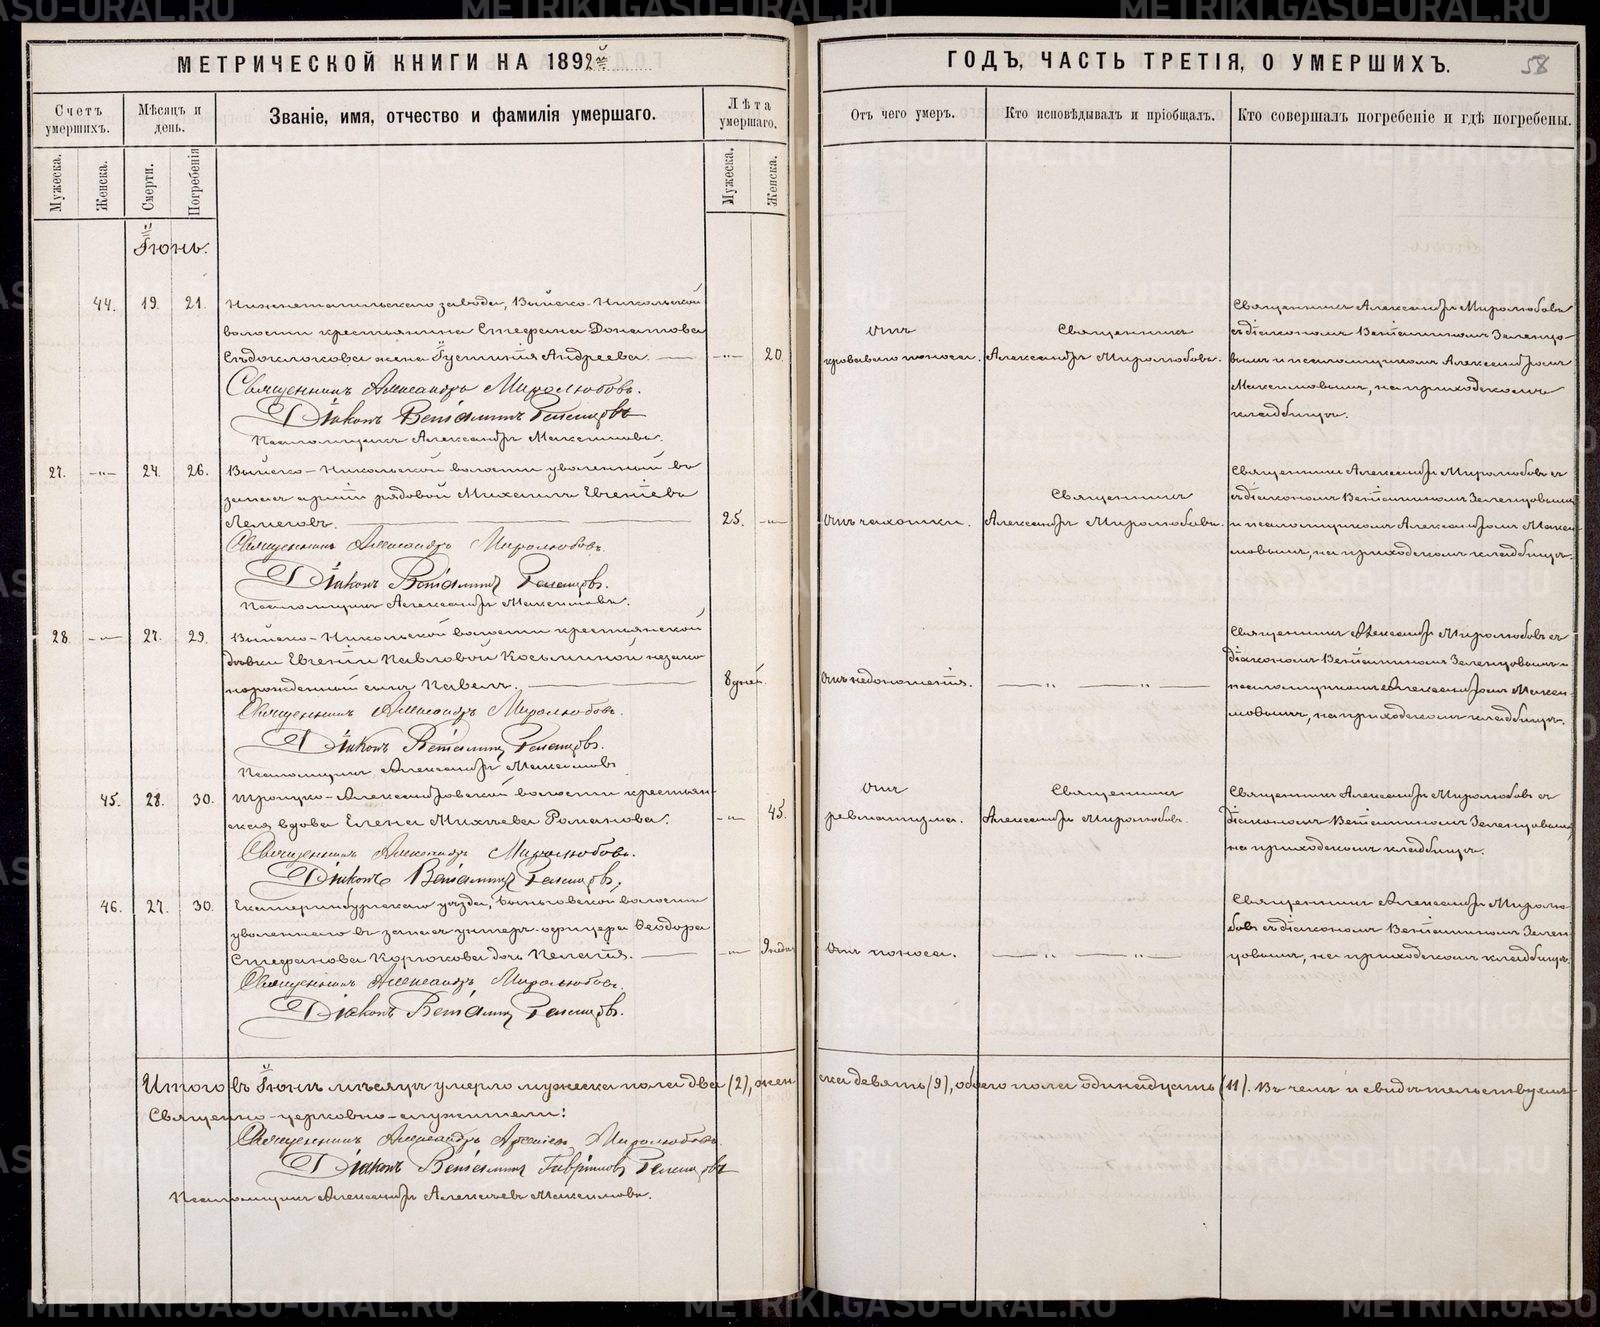 МЕТРИЧЕСКОЙ КНИГИ НА 1892й
Счетъ умершихъ.
Мѣсяцъ и день.
Званіе, имя, отчество и фамилія умершаго.
Лѣта умершаго.
Мужеска.
Женска.
Смерти.
Погребенія
Мужеска.
Женска.
Іюнь.
44. 19. 21. Нижнетагильскаго завода, Выйско-Никольской
волости крестьянина Стефана Донатова
жена Іустинія Андреева. 20.
Священникъ Александръ Миролюбовъ.
Діаконъ Веніаминъ Зеленцовъ
Псаломщикъ Александръ Максимовъ.
27. 24. 26. Выйско-Никольской волости уволенный въ
запасъ арміи рядовой Михаилъ Евгеніевъ
25.
Священникъ Александръ Миролюбовъ.
Діаконъ Веніаминъ Зеленцовъ.
Псаломщикъ Александръ Максимовъ.
28. 27. 29. Выйско-Никольской волости крестьянской
дѣвки Евгеніи Павловой Косьминой незако-
норожденный сынъ Павелъ. 8 дней.
Священникъ Александръ Миролюбовъ.
Діаконъ Веніаминъ Зеленцовъ.
Псаломщикъ Александръ Максимовъ
45. 28. 30. Троицко-Александровской волости крестьян-
ская вдова Елена Михѣева Романова. 45.
Священникъ Александръ Миролюбовъ.
Діаконъ Веніаминъ Зеленцовъ.
46. 27. 30. Екатеринбургскаго уѣзда, волости
уволеннаго въ запасъ унтеръ-офицера Ѳеодора
Стефанова Корюкова дочь Пелагія. 9 недѣль
Священникъ Александръ Миролюбовъ.
Діаконъ Веніаминъ Зеленцовъ.
Итого въ Іюнѣ мѣсяцѣ умерло мужеска пола два (2), жен
Священно-церковно-служители:
Священникъ Александръ Миролюбовъ
Діаконъ Веніаминъ Гавріиловъ Зеленцовъ
Псаломщикъ Александръ Алексѣевъ Максимовъ.
ГОДЪ, ЧАСТЬ ТРЕТІЯ, О УМЕРШИХЪ.
58
Отъ чего умеръ.
Кто исповѣдывалъ и пріобщалъ.
Кто совершалъ погребеніе и гдѣ погребены.
Отъ
кроваваго поноса.
Священникъ
Александръ Миролюбовъ.
Священникъ Александръ Миролюбовъ
съ діакономъ Веніаминомъ Зеленцо-
вымъ и псаломщикомъ Александромъ
Максимовымъ, на приходскомъ
кладбищѣ.
Отъ чахотки.
Священникъ
Александръ Миролюбовъ.
Священникъ Александръ Миролюбовъ съ
діакономъ Веніаминомъ Зеленцовымъ
и псаломщикомъ Александромъ Макси-
мовымъ, на приходскомъ кладбищѣ.
Отъ недоношенія.
Священникъ Александръ Миролюбовъ съ
діакономъ Веніаминомъ Зеленцовымъ и
псаломщикомъ Александромъ Макси-
мовымъ, на приходскомъ кладбищѣ.
Отъ
ревматизма.
Священникъ
Александръ Миролюбовъ.
Священникъ Александръ Миролюбовъ съ
діакономъ Веніаминомъ Зеленцовымъ,
на приходскомъ кладбищѣ.
Отъ поноса.
Священникъ Александръ Миролю-
бовъ съ діакономъ Веніаминомъ Зелен
цовымъ, на приходскомъ кладбищѣ.
ска девять (9), обоего пола одинадцать (11). Въ чемъ и свидѣтельствуемъ
METRIKI.GASO-URAL.RU